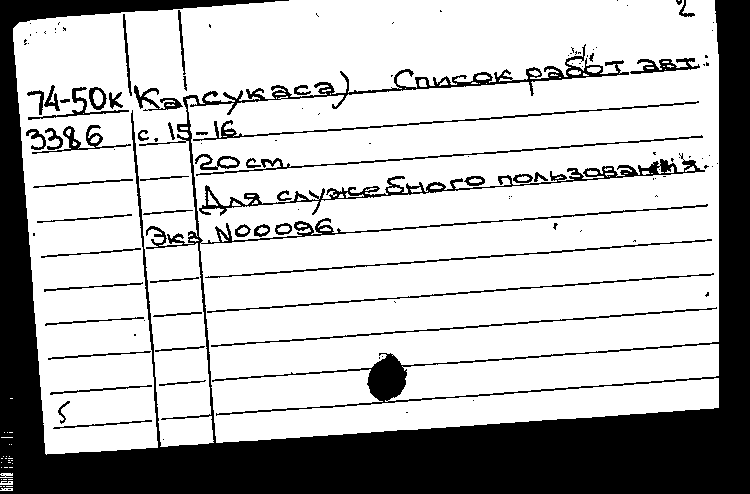 2
74-50к Капсукаса). Список работ авт.:
3386 с. 15-16.
20 cm.
Для служебного пользования.
Экз. N00096.
5